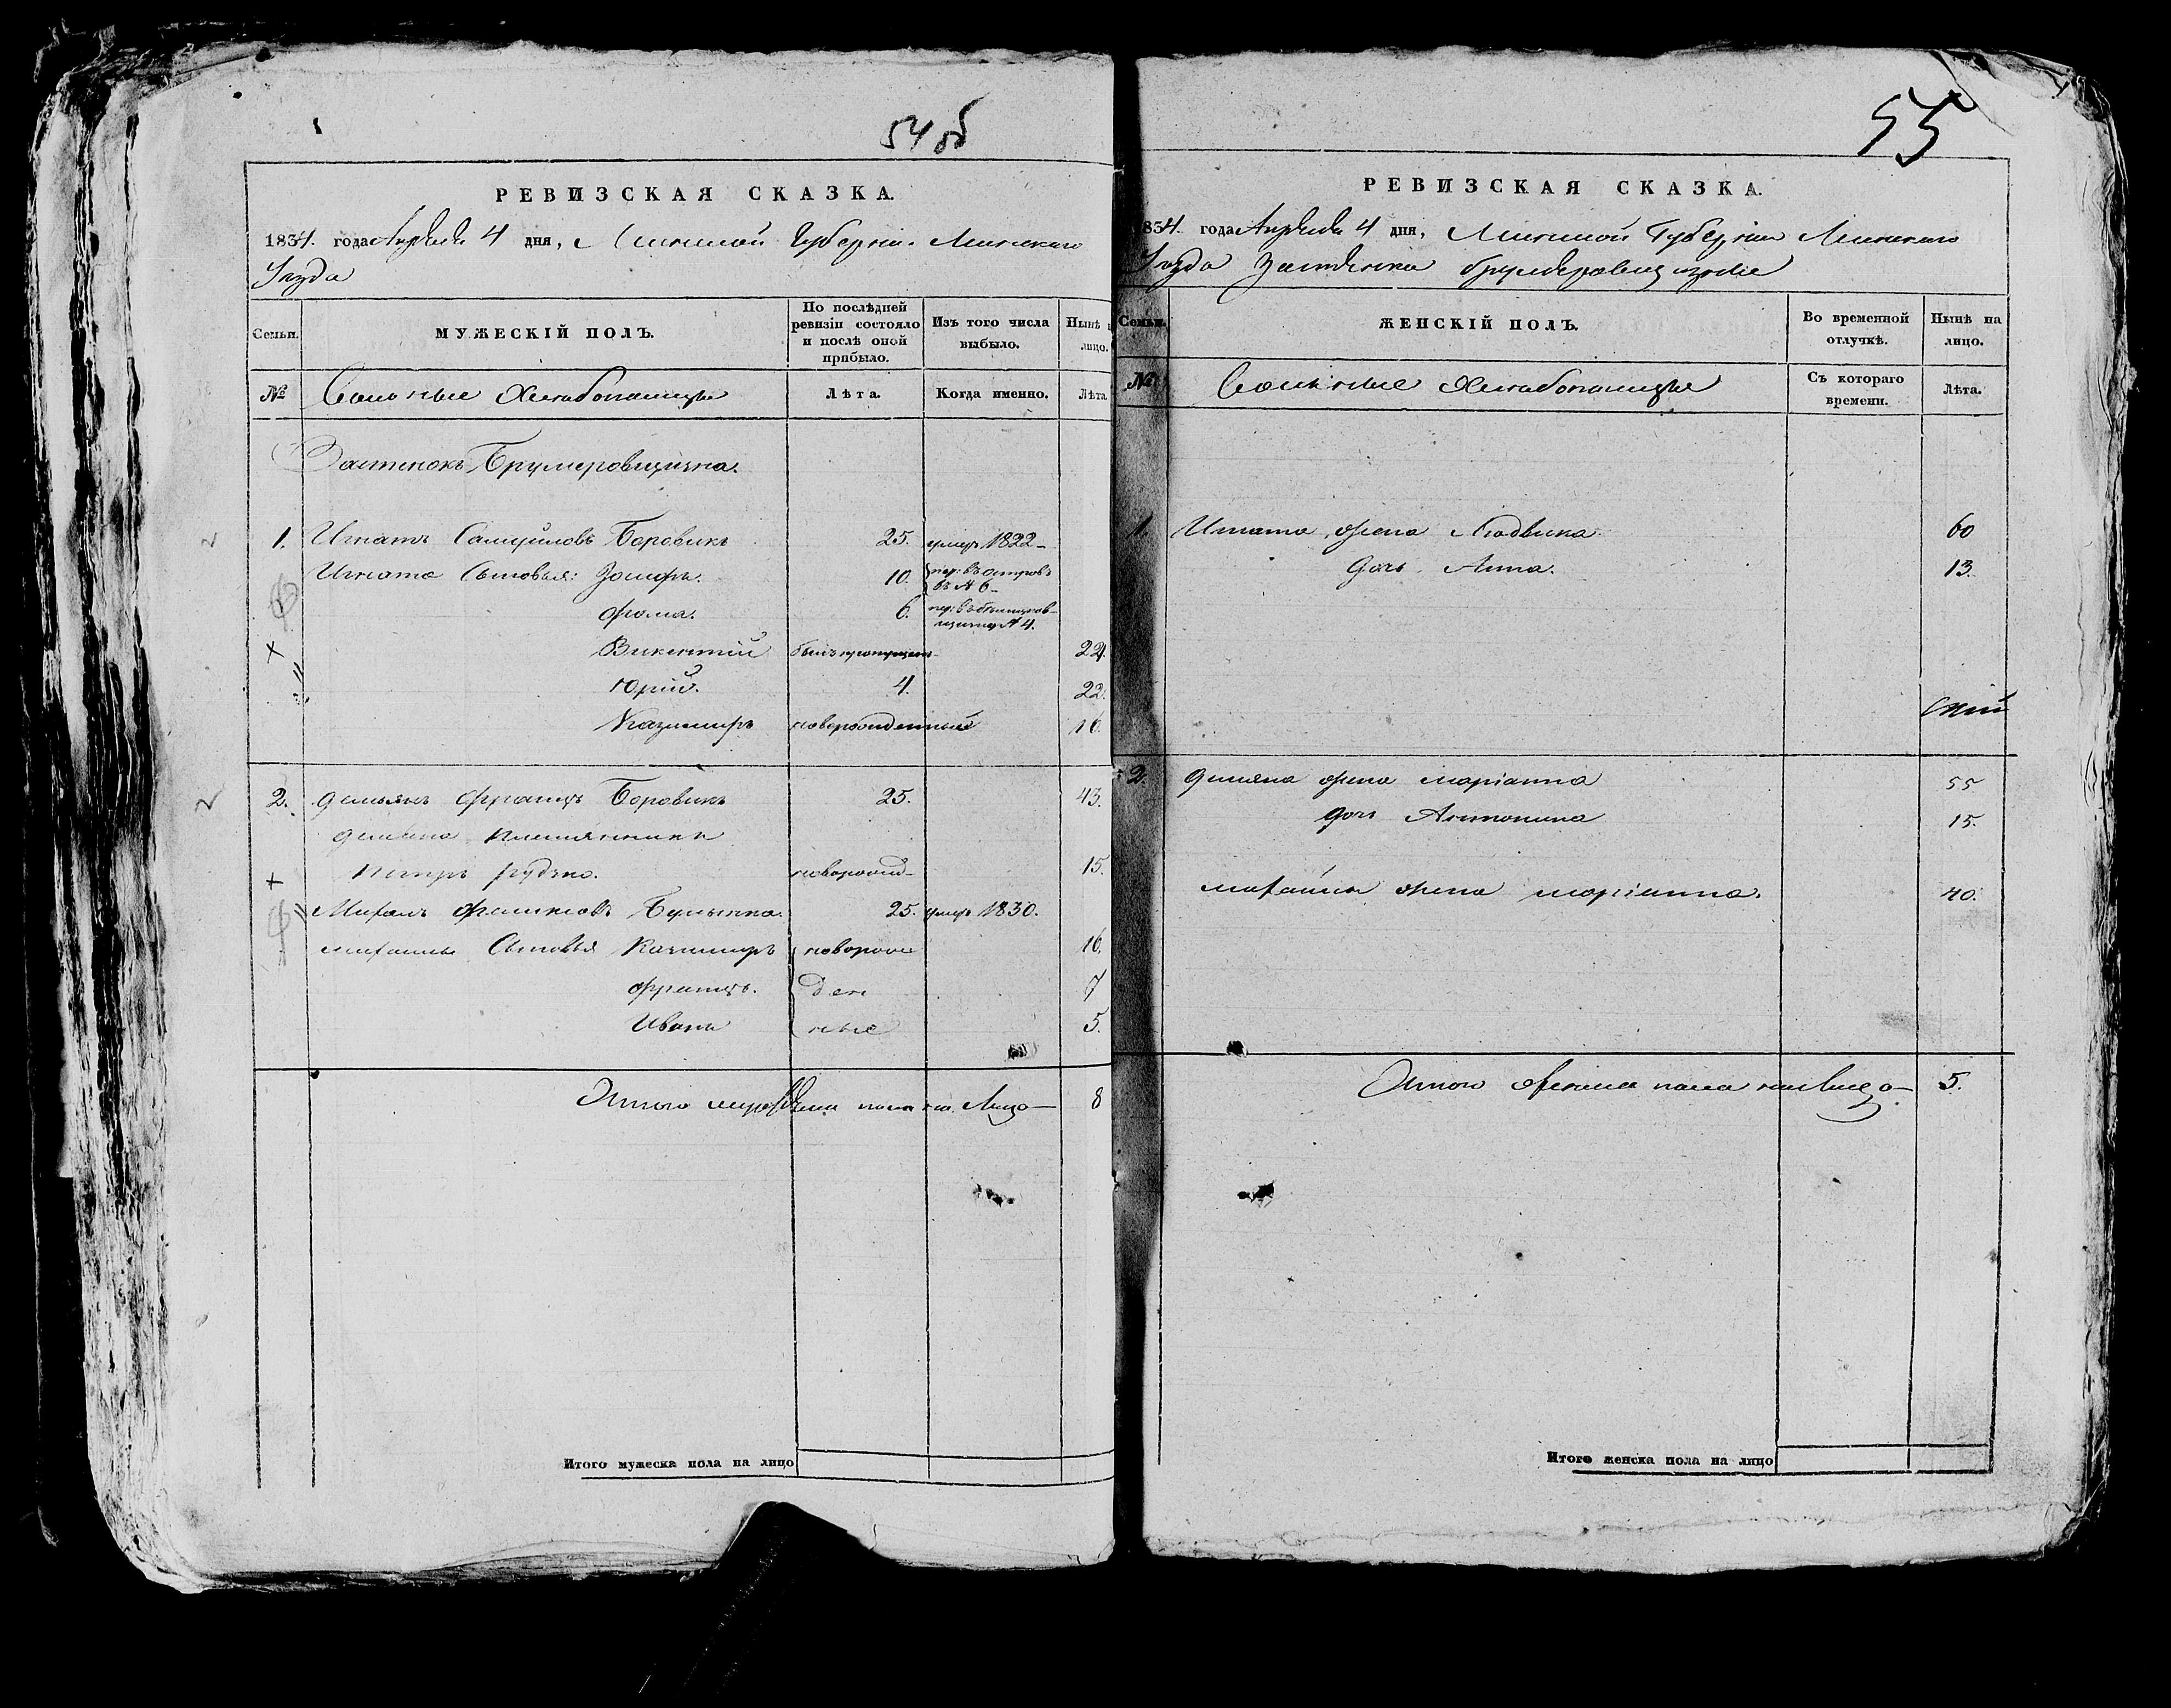 54 об
РЕВИЗСКАЯ СКАЗКА.
1834. года Апрѣля 4 дня, Минской Губерніи Минскаго
Уезда
Семьи.
МУЖЕСКІЙ ПОЛЪ.
По послѣдней ревизіи состояло и послѣ оной прибыло.
Изъ того числа выбыло.
Нынѣ
лицо.
№
Вольные Хлебопашцы
Лѣта.
Когда именно.
Лѣта
Застенокъ Брумеровщизна.
1. Игнатъ Самуйловъ Боровикъ 25. умеръ 1822
Игната Сыновья: Зомфъ. 10. пер: въ островъ въ № 6
Фома. 6. пер: въ № 4.
Викентій былъ пропущенъ 24
Юрій. 4. 22.
Казимиръ новорожденный 16.
2. Демьянъ Францъ Боровикъ 25. 43.
Демьяна племянникъ
Петръ Рудько. новорожд 15.
Михалъ 25. умеръ 1830.
Михаила Сыновья Казимиръ новорож 16.
Францъ. ден 7
Иванъ ные 5.
Итого мужеска пола на Лицо 8
Итого мужеска пола на лицо
55
РЕВИЗСКАЯ СКАЗКА.
834. года Апрѣля 4 дня, Минской Губерніи Минскаго
Уезда Застенка
Семьи.
ЖЕНСКІЙ ПОЛЪ.
Во временной отлучкѣ.
Нынѣ на лицо.
№
Вольные Хлебопашцы
Съ котораго времени.
Лѣта.
1. Игната жена Людвика 60
дочь Анна. 13.
2. Демьяна жена Маріанна 55
дочь Антонина 15.
Михайлы жена Маріанна. 40.
Итого женска пола на Лицо 5.
Итого женска пола на лицо